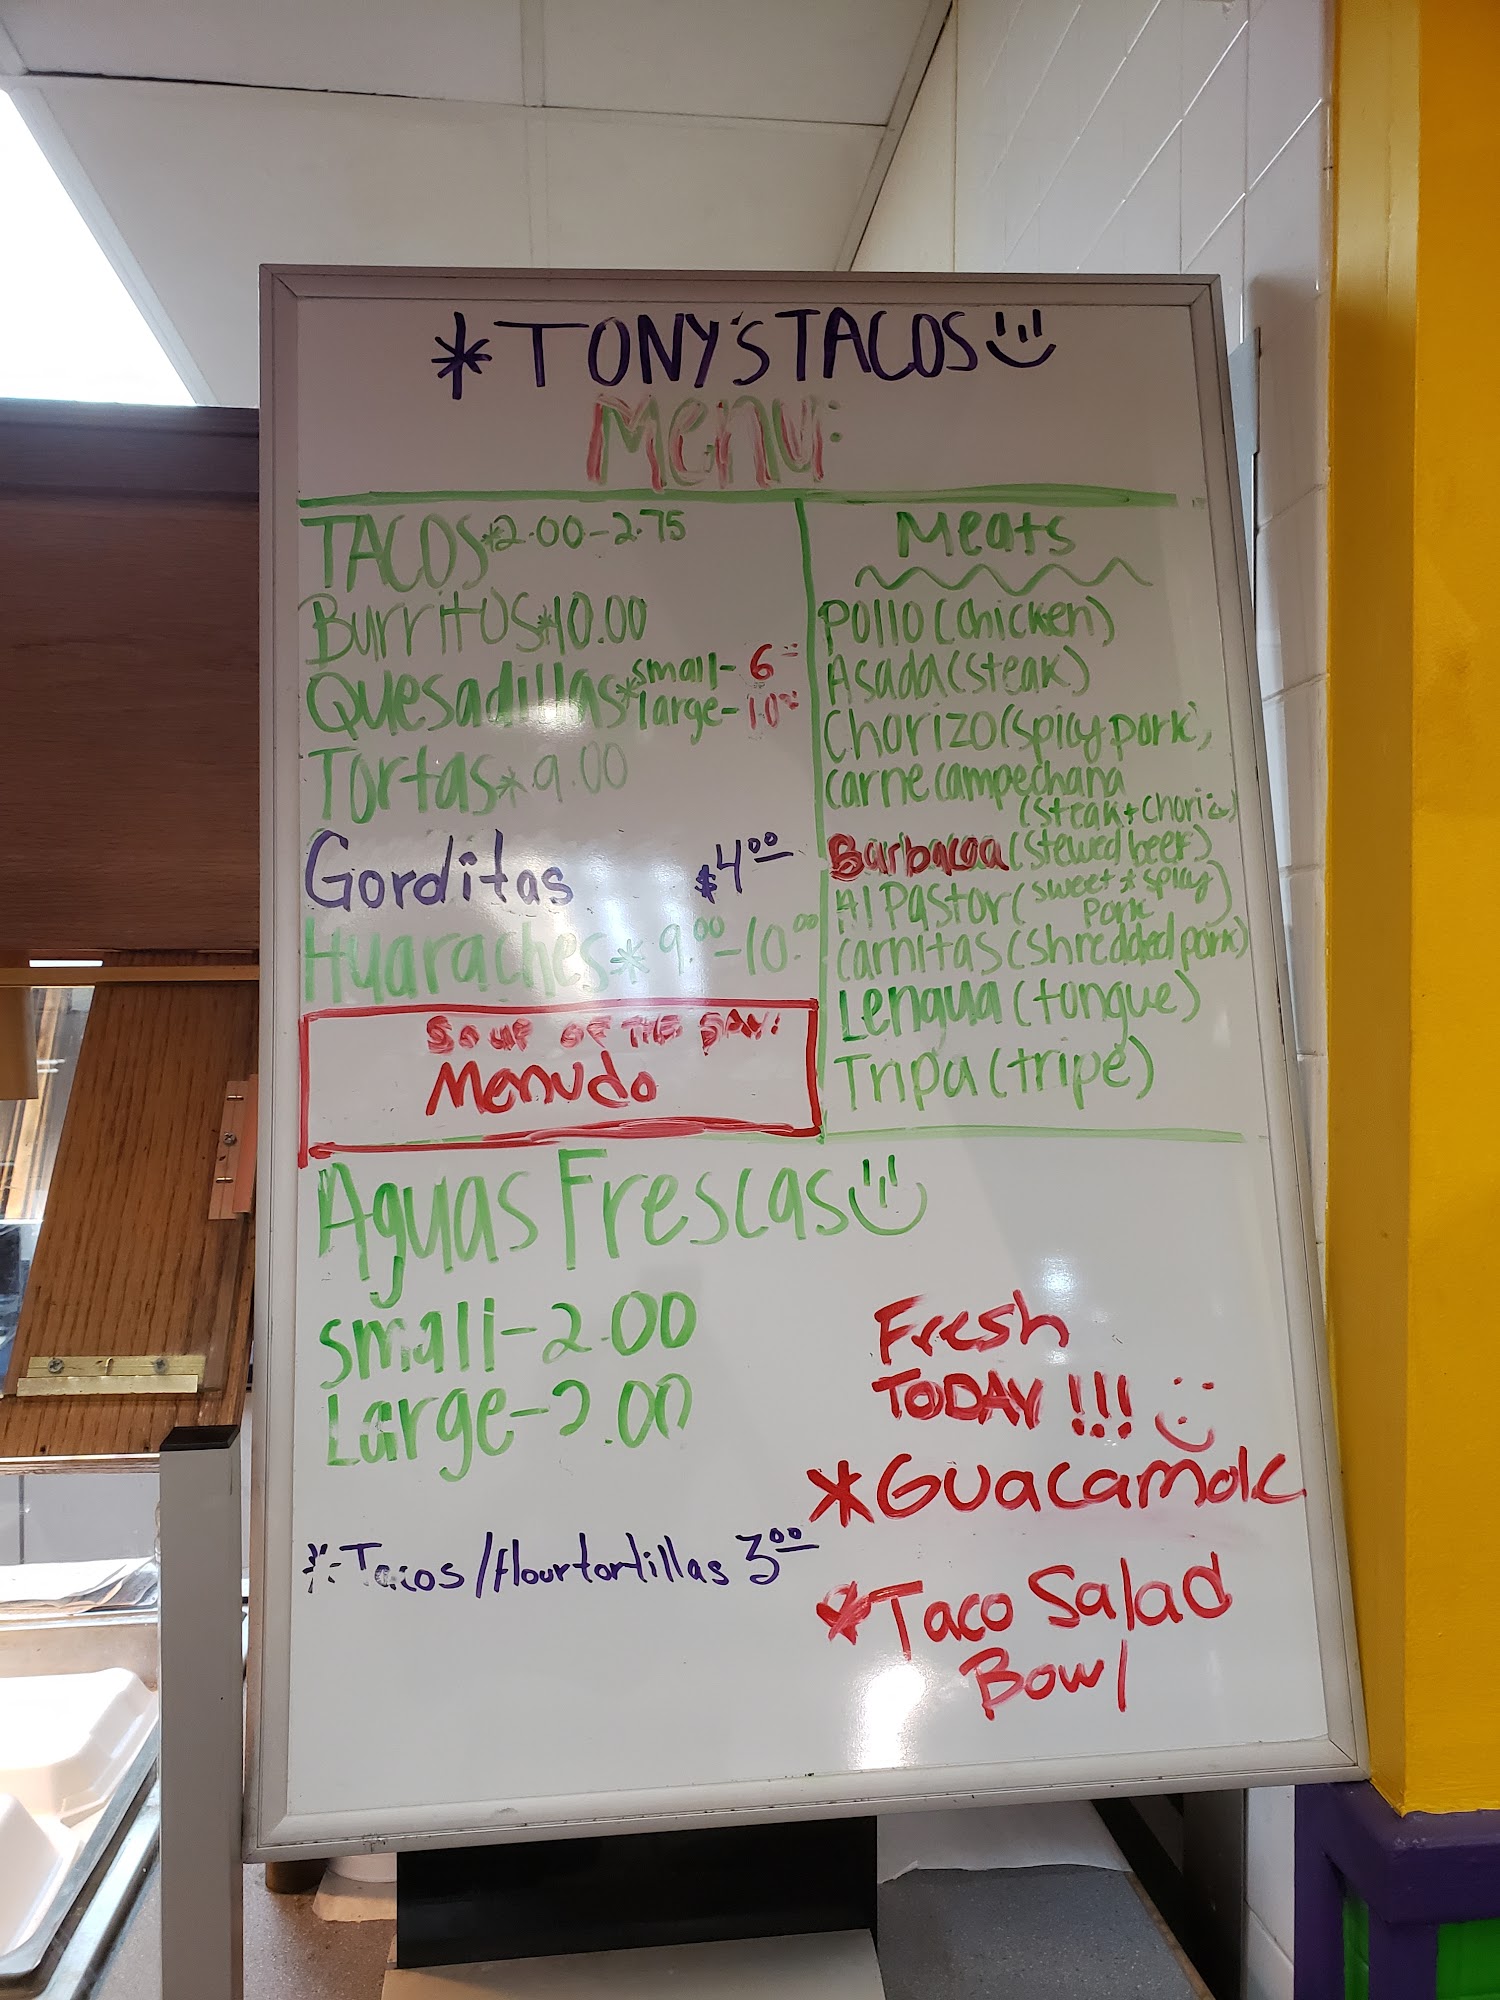 *TONY'S TACOS
Menu:
TACOS*2.00-2.75
Burritos*10.00
Quesadillas*small- 6
large- 10
Tortas*9.00
Gorditas $4.00
Huaraches*9.00-10.00
SOUP OF THE DAY:
Menudo
Meats
Pollo(chicken)
Asada(steak)
Chorizo(spicy pork)
Carne Campechana
(steak+chorizo)
Barbacoa(stewed beef)
Al Pastor(sweet * spicy
pork)
Carnitas(shredded pork)
Lengua(tongue)
Tripa(tripe)
Aguas Frescas
small-2.00
Large-
*Tacos/flourtortillas 3.00
Fresh
TODAY!!!
*Guacamole
*Taco Salad
Bowl